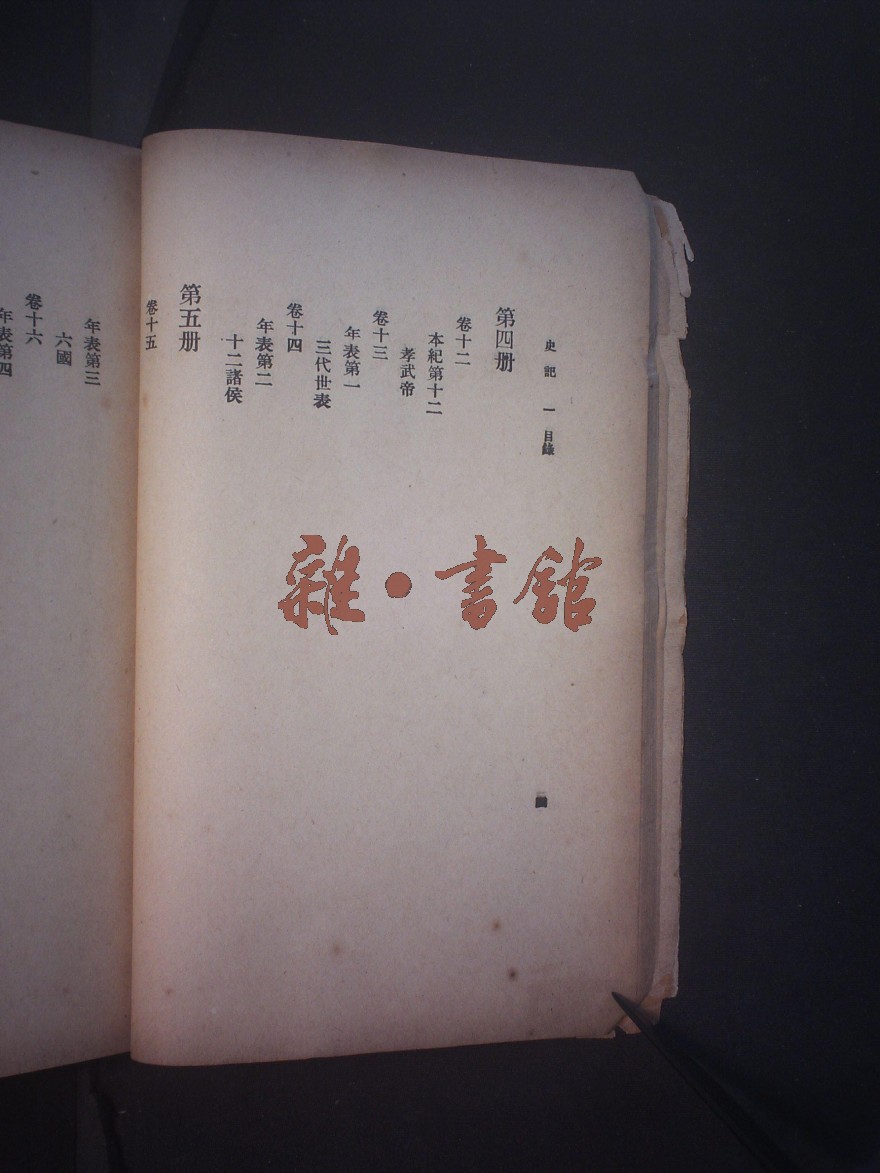 史記 一 目錄
第四册
卷十二
本紀第十二
孝武帝
卷十三
年表第一
三代世表
卷十四
年表第二
十二諸侯
第五册
卷十五
年表第三
六國
卷十六
年表第四
雜·書館